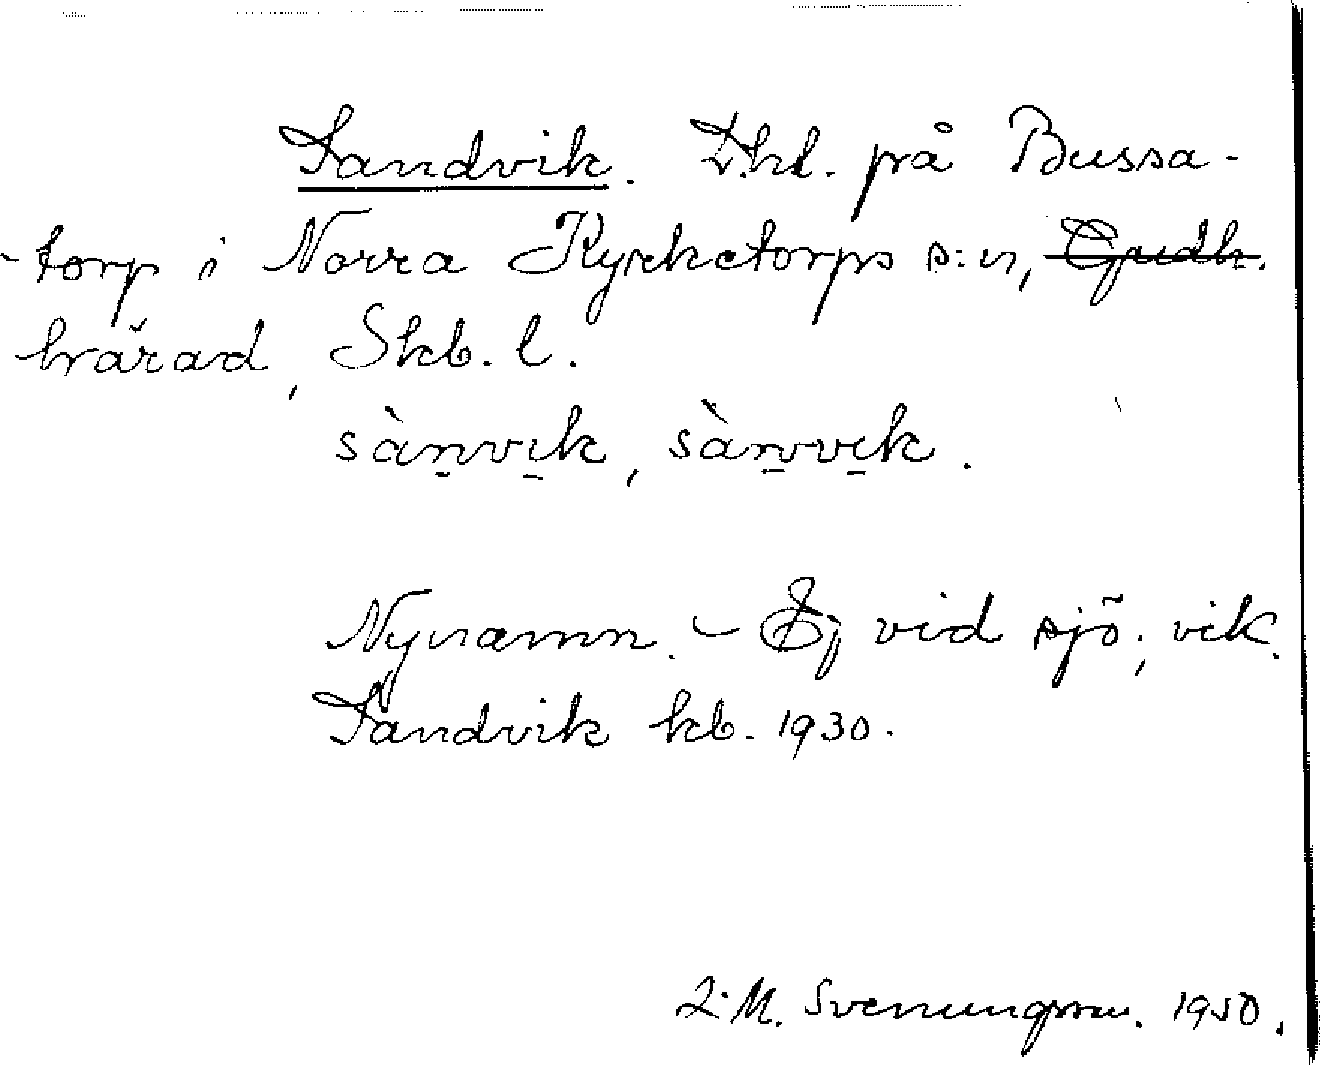 Sandvik. Dhl. på Bussa-
-torp i Norra Kyrketorps s:n, Gudh.
härad, Skb. l.
sàn̠vi̠k, sàn̠vvi̠k.
Nynamn. - Ej vid sjö; vik.
Sandvik kb. 1930.
L.M. Svenungsson. 1950.